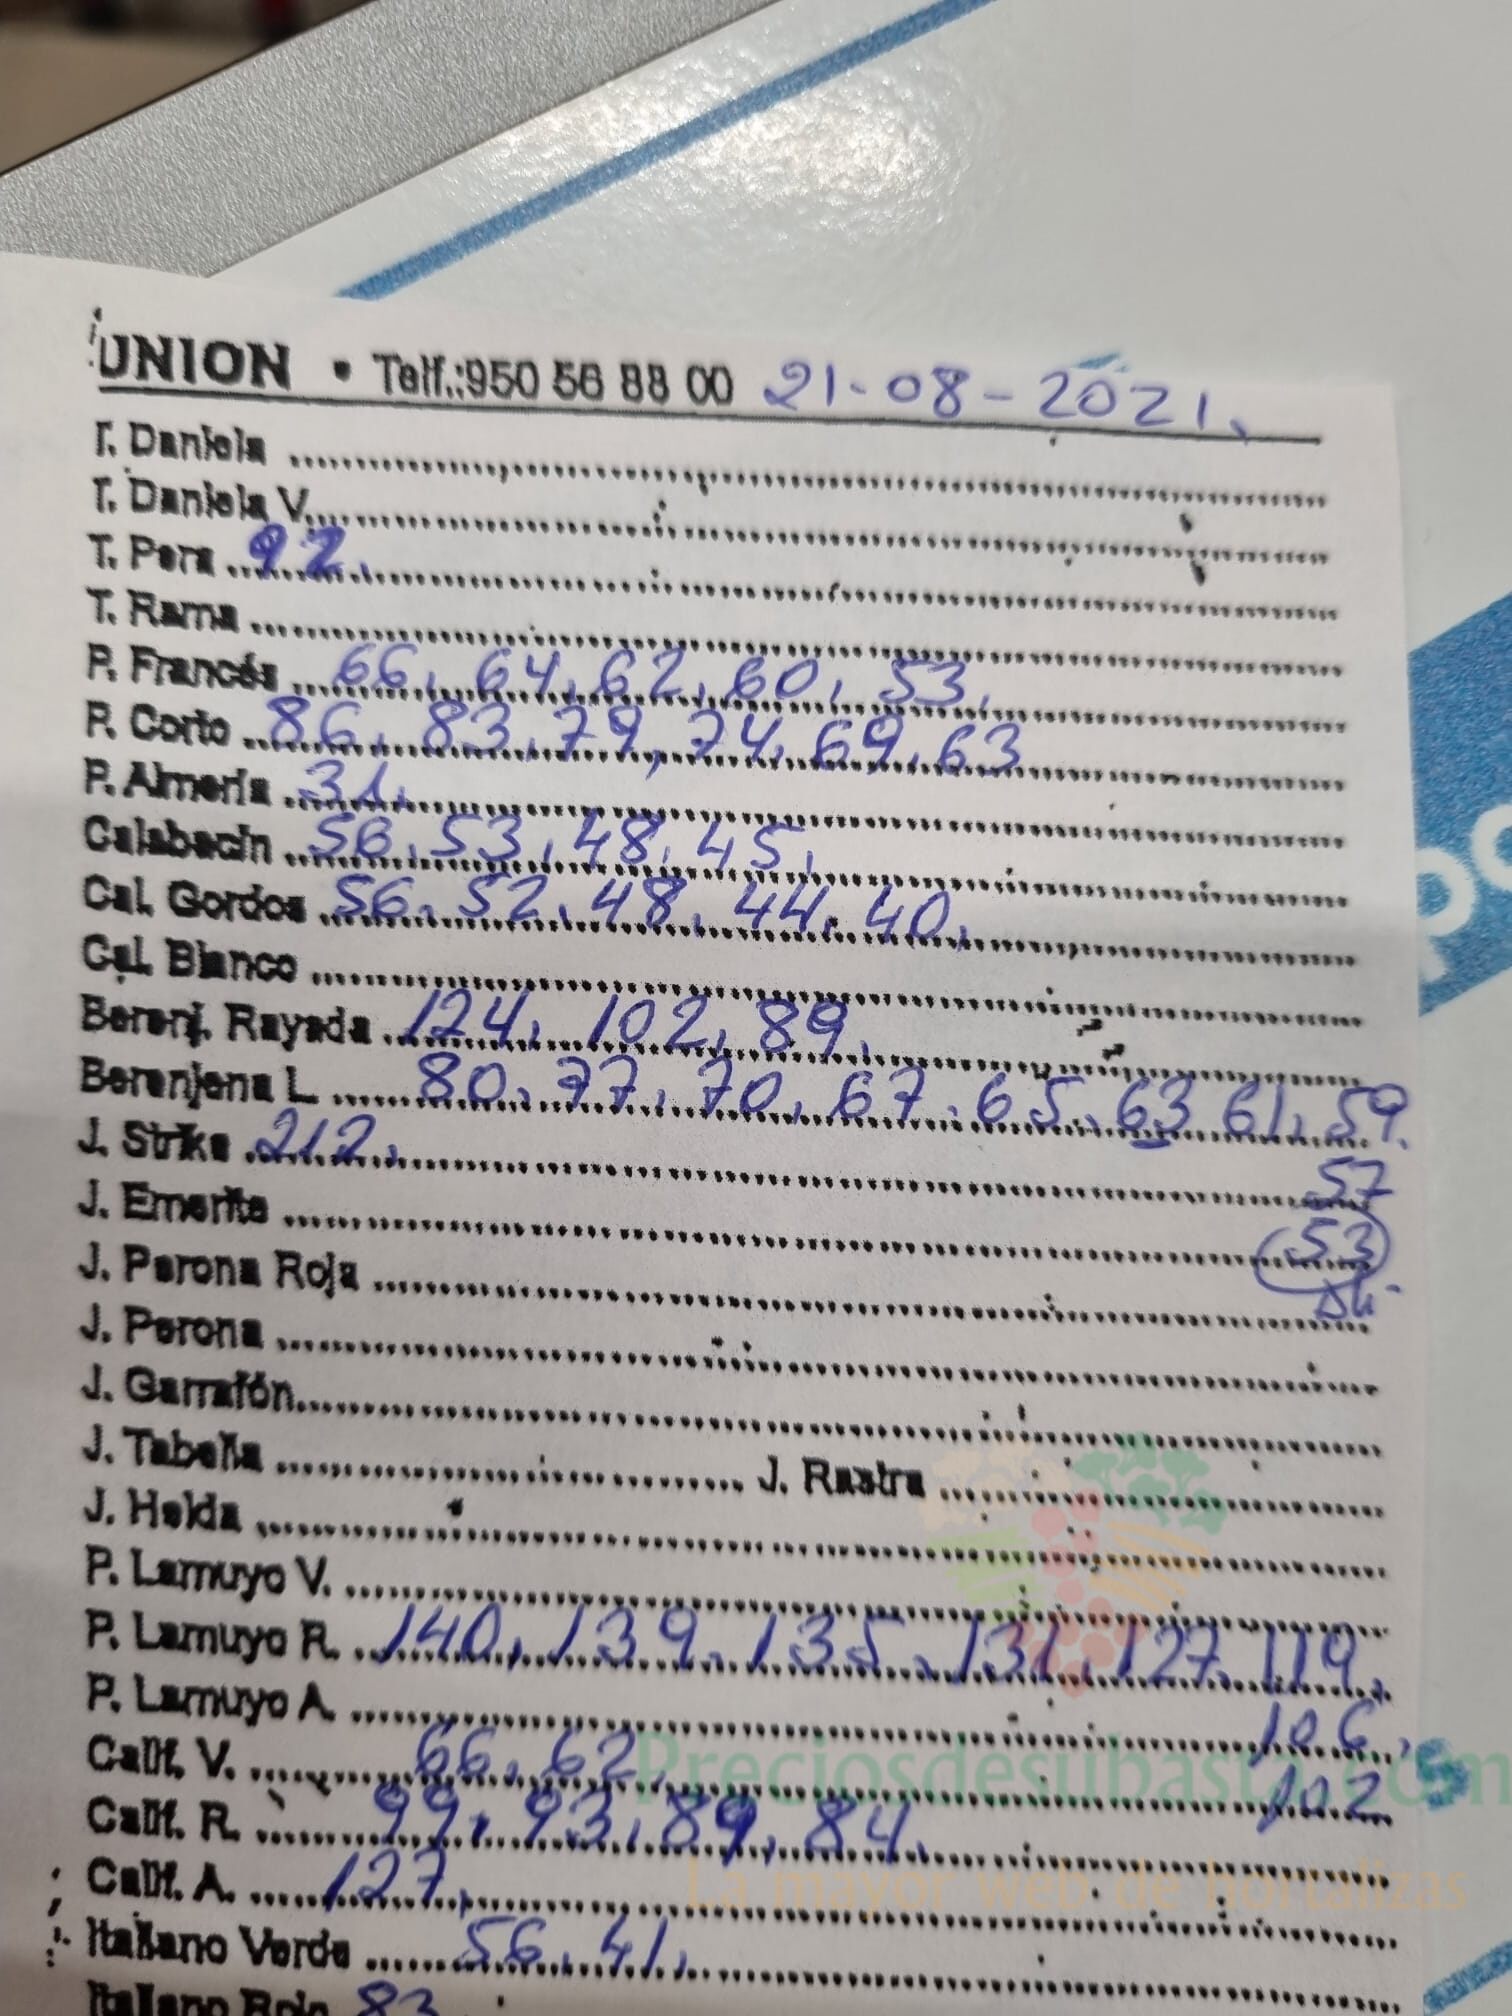 UNION • Telf.:950 56 88 00 21-08-2021.
T. Daniela
T. Daniela V.
T. Pera 92.
T. Rama
P. Francés 66, 64, 62, 60, 53,
P. Corto 86, 83, 79, 74, 69, 63
P. Almería 31.
Calabacín 56, 53, 48, 45,
Cal. Gordos 56, 52, 48, 44, 40,
Cal. Blanco
Berenj. Rayada 124, 102, 89,
Berenjena L. 80, 77, 70, 67, 65, 63 61, 59.
J. Strike 212. 57
J. Emerite 53
J. Perona Roja
J. Perona
J. Garrafón
J. Tabella J. Rastra
J. Helda
P. Lamuyo V.
P. Lamuyo R. 140, 139, 135, 131, 127, 119,
P. Lamuyo A. 106,
Calif. V. 66, 62, 102
Preciosdesubasta.com
Calif. R. 99, 93, 89, 84,
Calif. A. 127,
La mayor web de hortalizas
Italiano Verde 56, 41,
Italiano Rojo 83